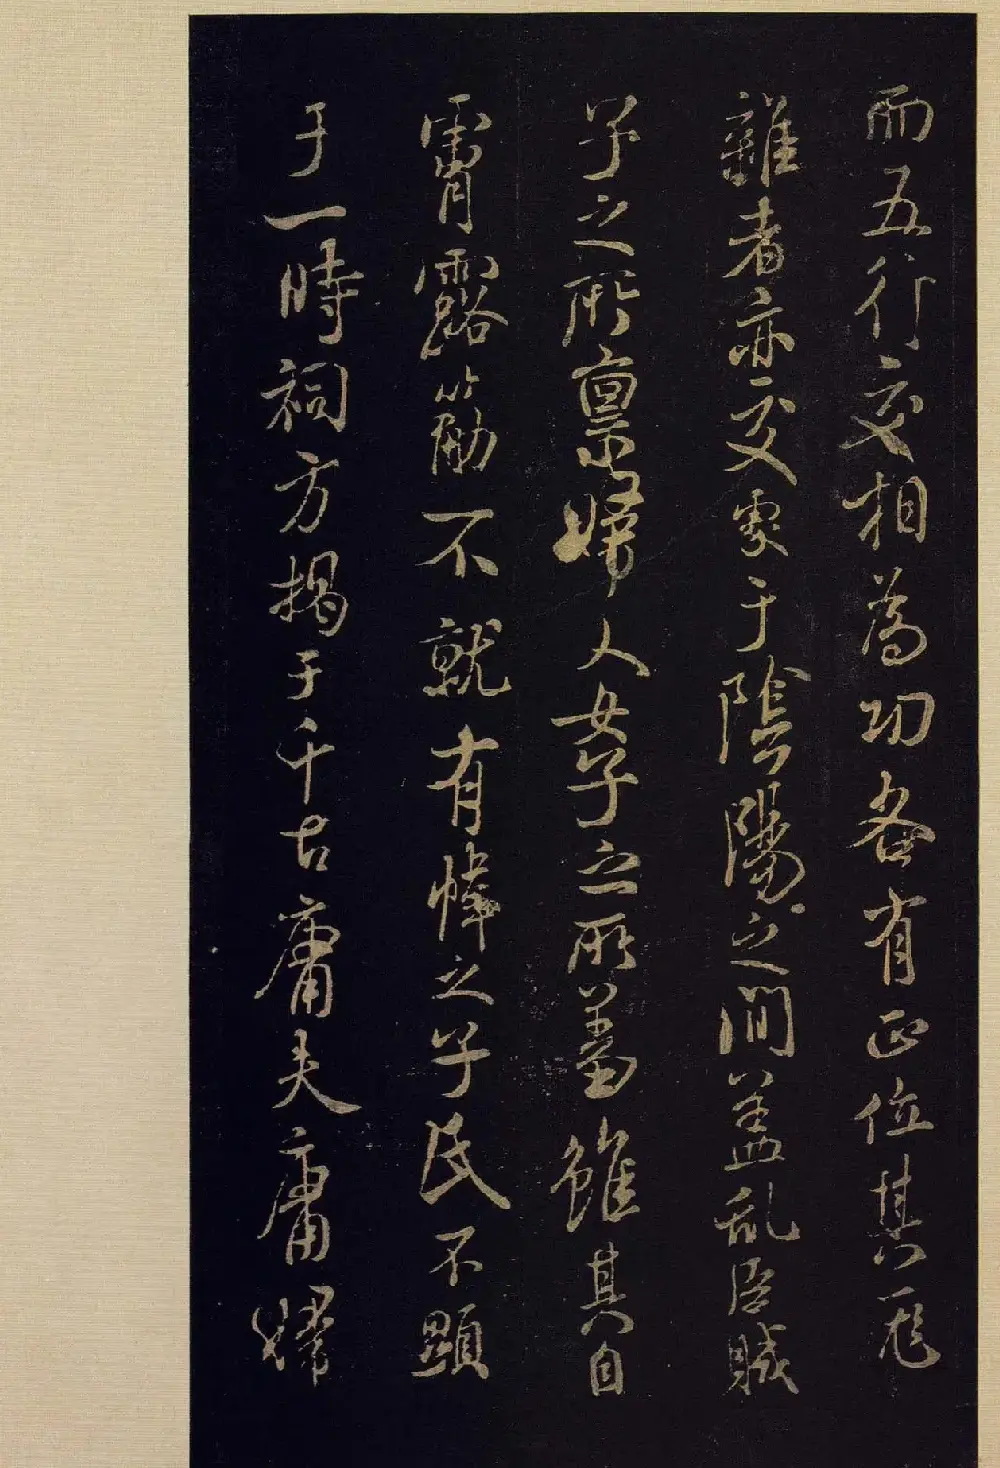 而五行交相為功各有正位其尨
雜者亦于陰陽之間盖乱臣賊
子之所禀婦人女子之所羞雖其自
甯露筋不就有幃之子民不顯
于一時祠方揭于千古庸夫庸婦